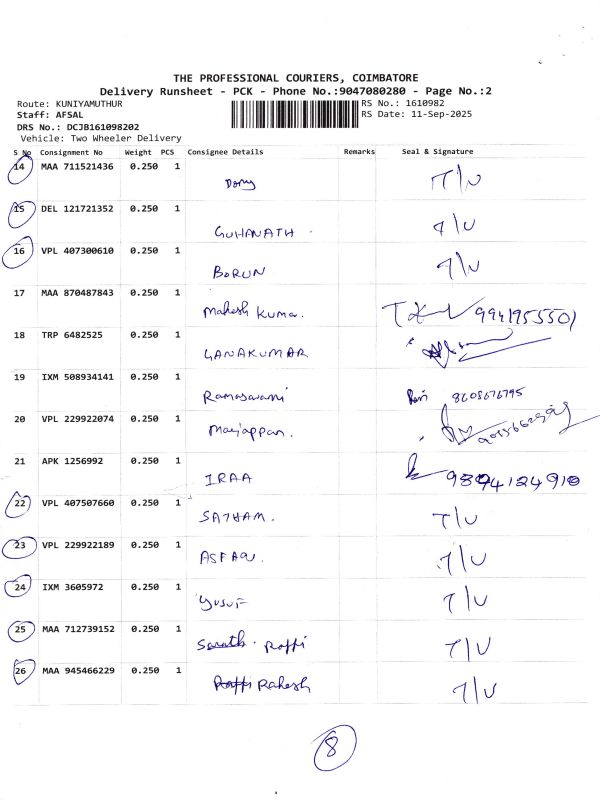 THE PROFESSIONAL COURIERS, COIMBATORE
Delivery Runsheet - PCK - Phone No.:9047080280 - Page No.:2
Route: KUNIYAMUTHUR RS No.: 1610982
Staff: AFSAL RS Date: 11-Sep-2025
DRS No.: DCJB161098202
Vehicle: Two Wheeler Delivery
S No Consignment No Weight PCS Consignee Details Remarks Seal & Signature
14 MAA 711521436 0.250 1 T/U
15 DEL 121721352 0.250 1 GUHANATH. T/U
16 VPL 407300610 0.250 1 BORUN T/U
17 MAA 870487843 0.250 1 Mahesh Kuma. 9941955501
18 TRP 6482525 0.250 1 GANAKUMAR
19 IXM 508934141 0.250 1 Ramaswami Ravi 8608676795
20 VPL 229922074 0.250 1 Mariappan.
21 APK 1256992 0.250 1 IRAA 9894124910
22 VPL 407507660 0.250 1 SATHAM. T/U
23 VPL 229922189 0.250 1 ASFAQ. T/U
24 IXM 3605972 0.250 1 YUSUF T/U
25 MAA 712739152 0.250 1 Sarath. Raffi T/U
26 MAA 945466229 0.250 1 Raffi Rakesh T/U
8